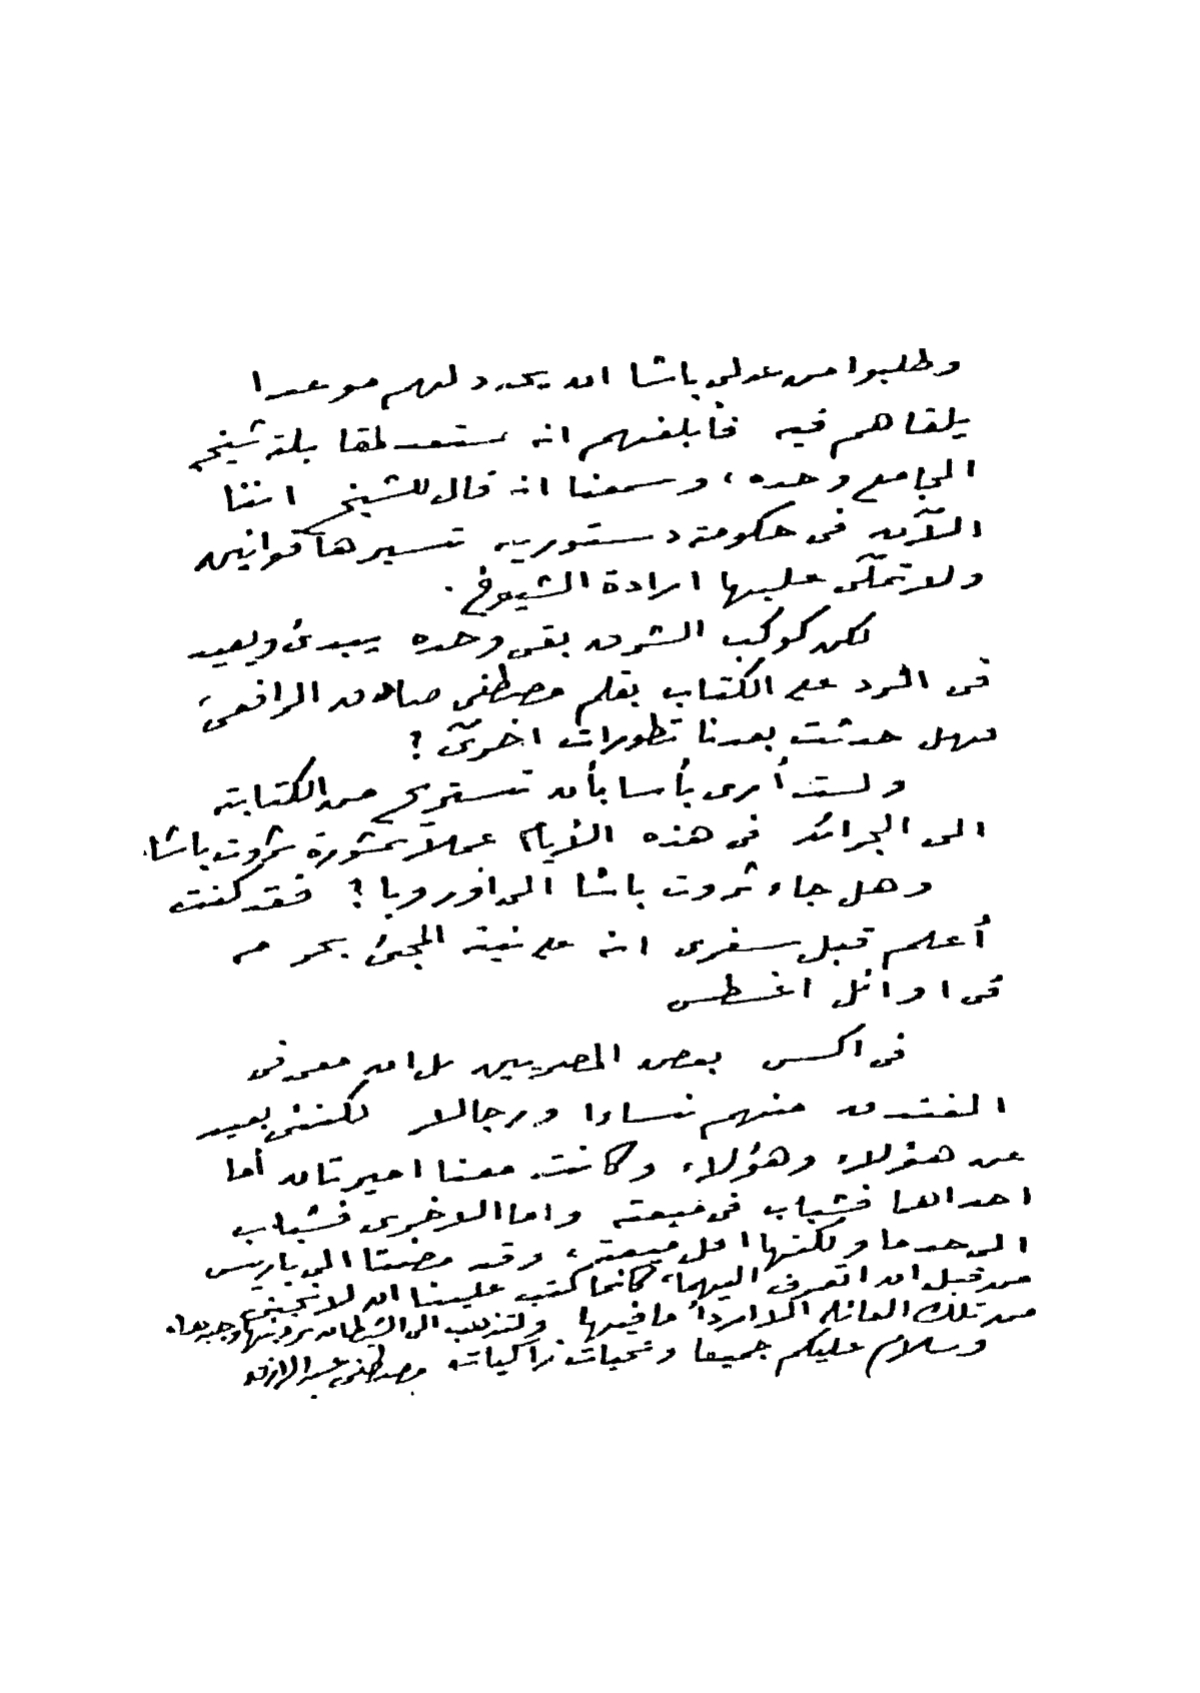 وطلبوا من عدلى باشا ان يحدد لهم موعدا
يلقاهم فيه فأبلغهم انه مستعد لمقابلة شيخ
الجامع وحده، وسمعنا انه قال للشيخ اننا
الآن فى حكومة دستورية تسيرها قوانين
ولا تملى عليها ارادة الشيوخ.
لكن كوكب الشرق بقى وحده يبدئ ويعيد
فى الرد على الكتاب بقلم مصطفى صادق الرافعى
فهل حدثت بعدنا تطورات اخرى ؟
ولست أرى بأسا بأن تستريح من الكتابة
الى الجرائد فى هذه الأيام عملا بمشورة ثروت باشا.
وهل جاء ثروت باشا الى اوروبا ؟ فقد كنت
أعلم قبل سفرى انه على نية المجئ بحرمه
فى اوائل اغسطس
فى اكس بعض المصريين بل ان معى فى
الفندق منهم نساءا ورجالا لكننى بعيد
عن هؤلاء وهؤلاء وكانت معنا اميرتان أما
احداهما فشباب فى ميعته واما الاخرى فشباب
الى حد ما ولكنها اقل ميعة، وقد مضتا الى باريس
من قبل ان اتعرف اليهما، كانما كتب علينا ان لا تجيئنى
من تلك العائلة الا اردأ ما فيها ولتذهب الى الشيطان بروبتها وجيدها.
وسلام عليكم جميعا وتحيات زاكيات مصطفى عبد الرازق